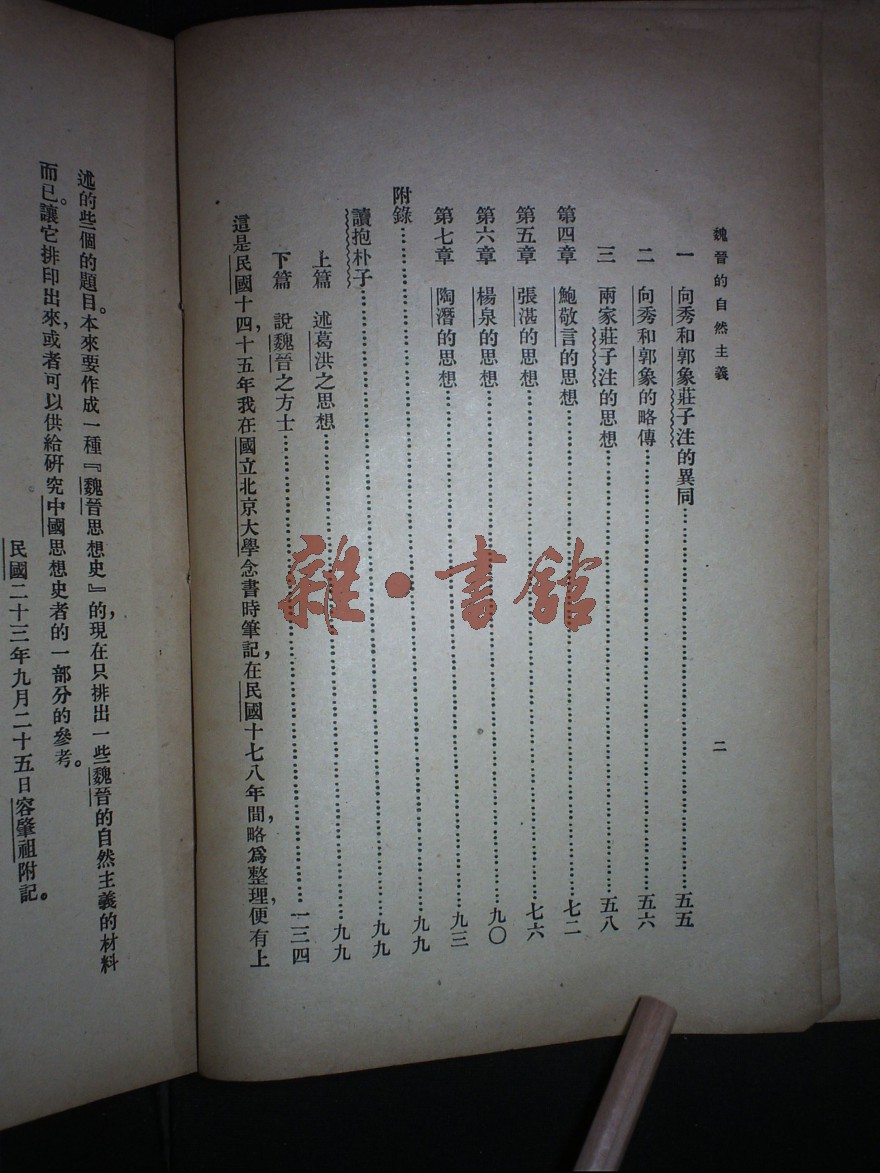 魏晉的自然主義
二
一　向秀和郭象莊子注的異同……五五
二　向秀和郭象的略傳……五六
三　兩家莊子注的思想……五八
第四章　鮑敬言的思想……七二
第五章　張湛的思想……七六
第六章　楊泉的思想……九〇
第七章　陶潛的思想……九三
附錄……九九
讀抱朴子……九九
上篇　述葛洪之思想……九九
下篇　說魏晉之方士……一三四
這是民國十四,十五年我在國立北京大學念書時筆記,在民國十七八年間,略爲整理,便有上
述的些個的題目。本來要作成一種『魏晉思想史』的,現在只排出一些魏晉的自然主義的材料
而已。讓它排印出來,或者可以供給研究中國思想史者的一部分的參考。
民國二十三年九月二十五日容肇祖附記。
雜·書館